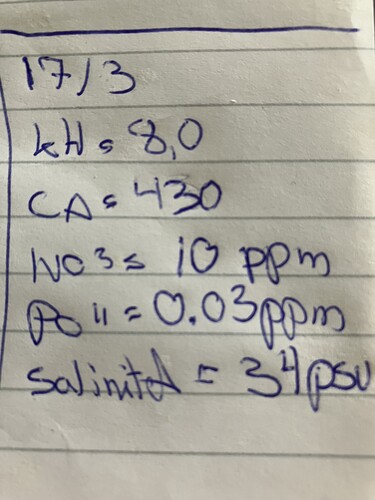 17/3
kH = 8,0
CA = 430
NO3 = 10 ppm
PO4 = 0.03ppm
Salinità = 34psu